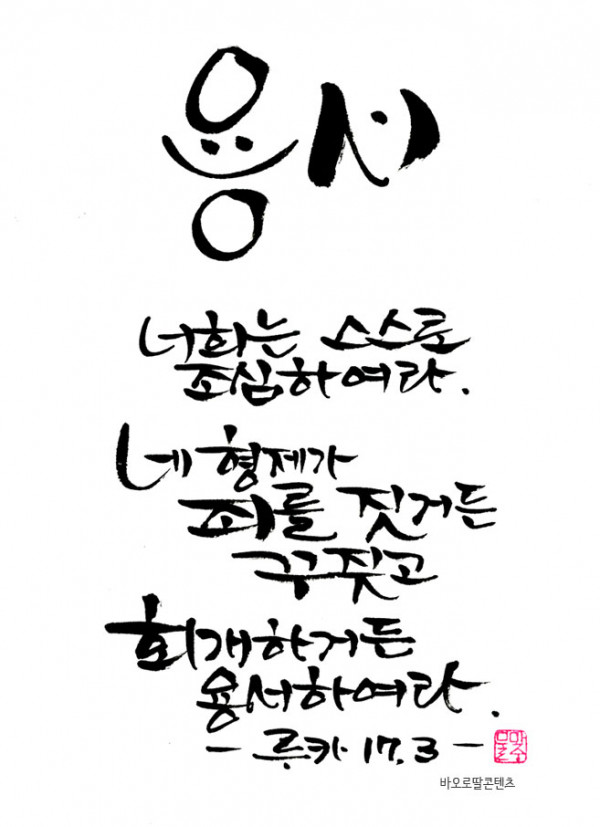 용서
너희는 스스로
조심하여라.
네 형제가
죄를 짓거든
꾸짖고
회개하거든
용서하여라.
- 루카 17.3 -
바오로딸콘텐츠